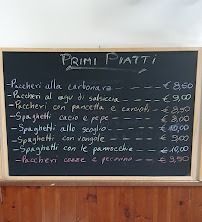 PRIMI PIATTI
-Paccheri alla carbonara € 8,50
-Paccheri al ragù di salsiccia € 9,00
-Paccheri con pancetta e carciofi € 8,50
-Spaghetti cacio e pepe € 8,00
-Spaghetti allo scoglio € 10,00
-Spaghetti con vongole € 9,00
-Spaghetti con le pannocchie € 10,00
-Paccheri cozze e pecorino € 9,50